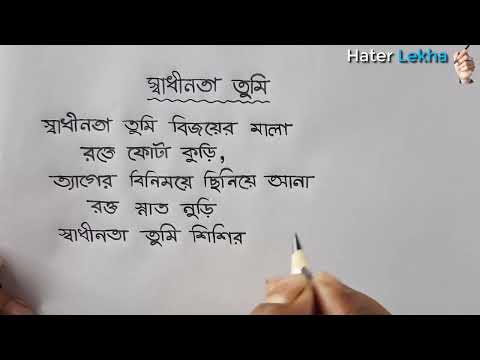 Hater Lekha
স্বাধীনতা তুমি
স্বাধীনতা তুমি বিজয়ের মালা
রক্তে ফোটা কুড়ি,
ত্যাগের বিনিময়ে ছিনিয়ে আনা
রক্ত স্নাত নুড়ি
স্বাধীনতা তুমি শিশির